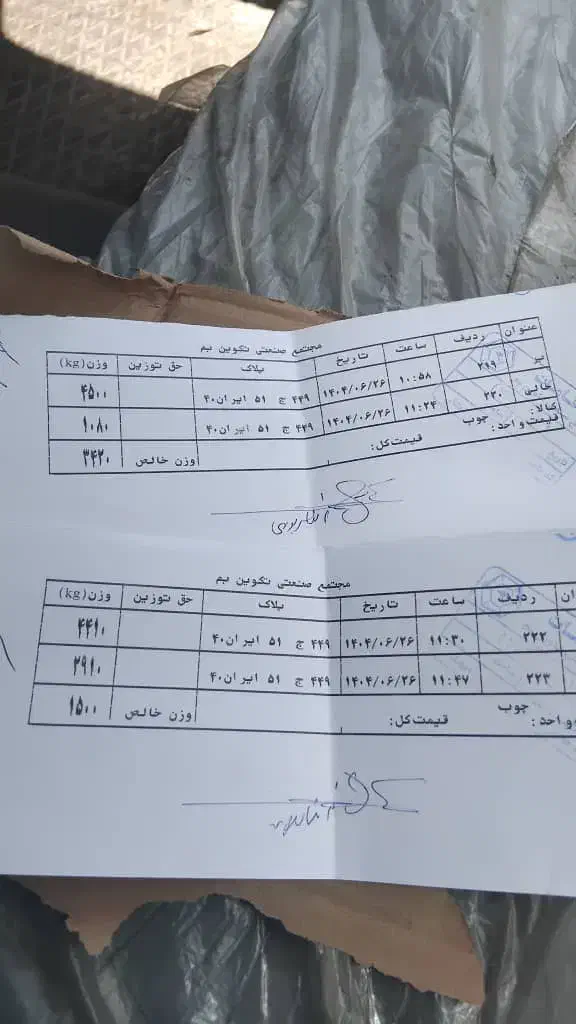 مجتمع صنعتی تکوین بم
عنوان ردیف ساعت تاریخ پلاک حق توزین وزن(kg)
پر ۲۹۹ ۱۰:۵۸ ۱۴۰۴/۰۶/۲۶ ۴۴۹ ج ۵۱ ایران۴۰ ۴۵۰۰
خالی ۲۲۰ ۱۱:۲۴ ۱۴۰۴/۰۶/۲۶ ۴۴۹ ج ۵۱ ایران۴۰ ۱۰۸۰
کالا: چوب
قیمت واحد: قیمت کل: وزن خالص ۳۴۲۰
مجتمع صنعتی تکوین بم
ردیف ساعت تاریخ پلاک حق توزین وزن(kg)
۲۲۲ ۱۱:۳۰ ۱۴۰۴/۰۶/۲۶ ۴۴۹ ج ۵۱ ایران۴۰ ۴۴۱۰
۲۲۳ ۱۱:۴۷ ۱۴۰۴/۰۶/۲۶ ۴۴۹ ج ۵۱ ایران۴۰ ۲۹۱۰
چوب
واحد: قیمت کل: وزن خالص ۱۵۰۰